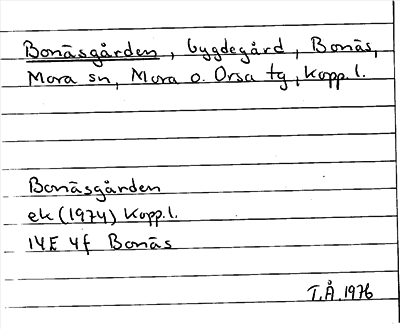 Bonäsgården, bygdegård, Bonäs,
Mora sn, Mora o. Orsa tg, Kopp. l.
Bonäsgården
ek (1974) Kopp. l.
14E 4f Bonäs
T.Å. 1976